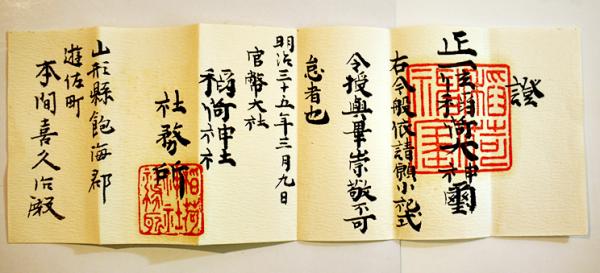 證
正一位稲荷大神璽
右今般依請願小祀式
令授與畢崇敬不可
怠者也
明治三十五年三月九日
官幣大社
稲荷神社
社務所
山形縣飽海郡
遊佐町
本間喜久治殿